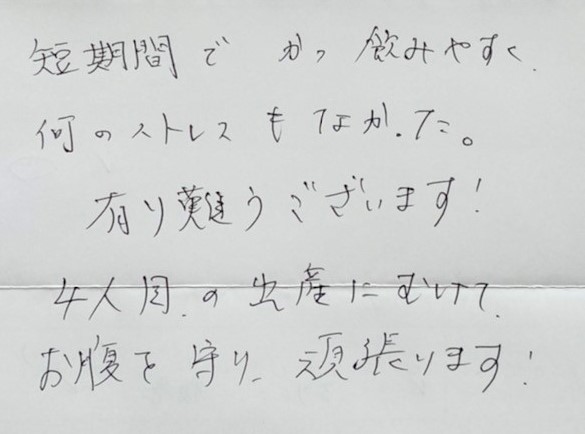 短期間で かつ 飲みやすく
何のストレスもなかった。
有り難うございます!
4人目の出産にむけて
お腹を守り、頑張ります!